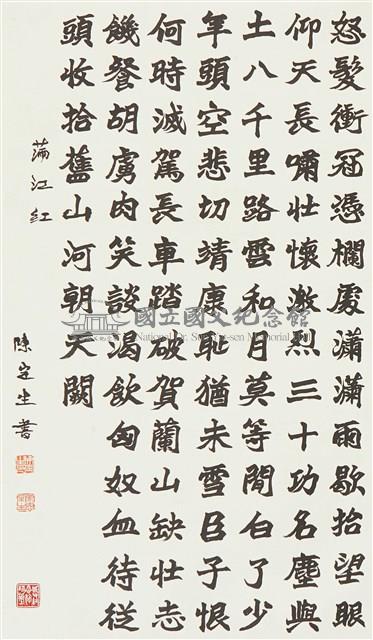 怒髮衝冠憑欄處瀟瀟雨歇抬望眼
仰天長嘯壯懷激烈三十功名塵與
土八千里路雲和月莫等閒白了少
年頭空悲切靖康恥猶未雪臣子恨
何時滅駕長車踏破賀蘭山缺壯志
饑餐胡虜肉笑談渴飲匈奴血待從
頭收拾舊山河朝天闕
滿江紅
陳定書
國立國父紀念館
National Dr. Sun Yat-sen Memorial Hall